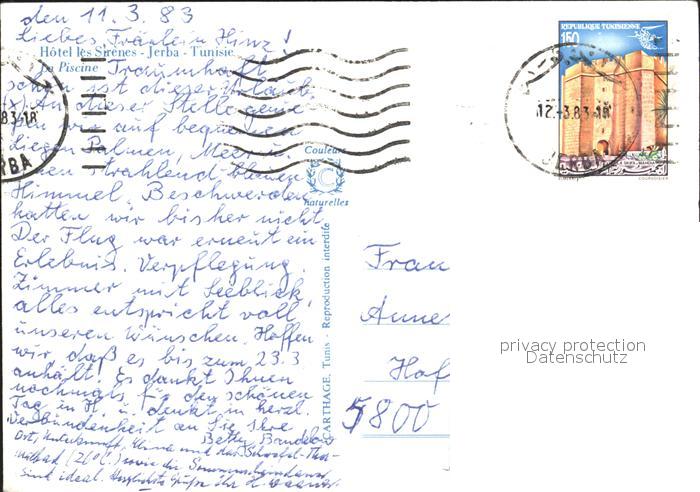 den 11.3.83
Liebes Fräulein Hinz!
Hôtel les Sirènes - Jerba - Tunisie
La Piscine
Traumhaft
schön ist dieser Urlaub.
(x) An dieser Stelle genie-
ßen wir auf bequemen
Liegen Palmen, Meer u.
einen strahlend-blauen
Himmel. Beschwerden
hatten wir bisher nicht.
Der Flug war erneut ein
Erlebnis. Verpflegung,
Zimmer mit Seeblick,
alles entspricht voll
unseren Wünschen. Hoffen
wir, daß es bis zum 23.3
anhält. Es dankt Ihnen
nochmals für den schönen
Tag in H. u. denkt in herzl.
Verbundenheit an Sie Ihre
Betty
Ort, Unterkunft, Klima und das
(26°C.) sowie die
sind ideal. Herzlichste Grüße Ihr
Couleurs
C
naturelles
CARTHAGE, Tunis - Reproduction interdite
REPUBLIQUE TUNISIENNE
150
12.-3.83-18
JERBA
83-18
RBA
Frau
Anne
Hof
5800
privacy protection
Datenschutz